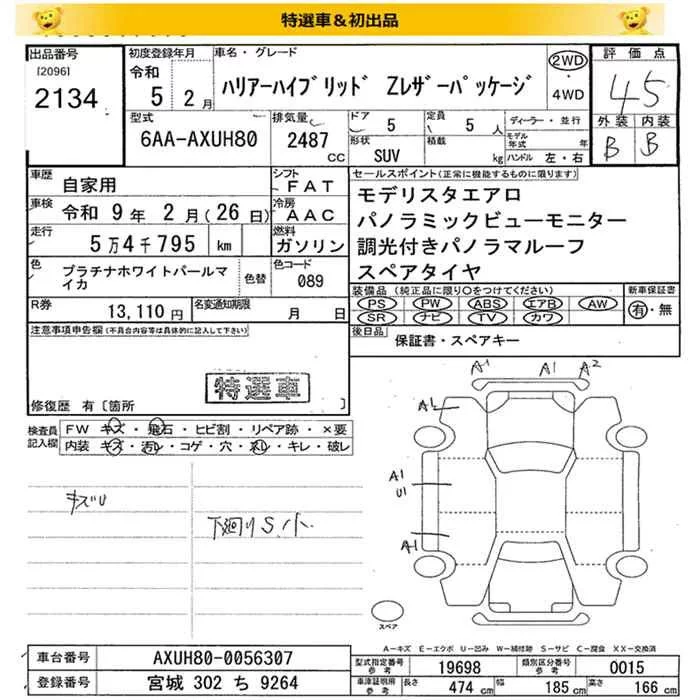 特選車＆初出品
出品番号
[2096]
2134
初度登録年月
令和
5 2月
車名・グレード
ハリアーハイブリッド Zレザーパッケージ
2WD
・
4WD
評価点
45
外装 内装
B B
型式
6AA-AXUH80
排気量
2487
CC
ドア
5
定員
5人
形状
SUV
積載
kg
ディーラー・並行
モデル年式 年
ハンドル 左・右
車歴
自家用
シフト
FAT
車検
令和 9年 2月(26日)
冷房
AAC
走行
5万4千795 km
燃料
ガソリン
色
プラチナホワイトパールマイカ
色替
色コード
089
R券
13,110円
名変通知期限
月 日
セールスポイント(正常に機能するものに限ります)
モデリスタエアロ
パノラミックビューモニター
調光付きパノラマルーフ
スペアタイヤ
装備品(純正品に限り○をつけてください)
PS PW ABS エアB AW
SR ナビ TV カワ
新車保証書
有・無
後日品
保証書・スペアキー
注意事項申告欄(不具合内容等は具体的に記入して下さい)
特選車
修復歴 有〔箇所 〕
検査員記入欄
FW キズ・飛石・ヒビ割・リペア跡・×要
内装 キズ・汚レ・コゲ・穴・スレ・キレ・破レ
キズU
下廻りS小
A1 A1 A2
A2
A1
U1
A1
スペア
A-キズ E-エクボ U-凹み W-補修跡 S-サビ C-腐食 XX-交換済
車台番号
AXUH80-0056307
登録番号
宮城 302 ち 9264
型式指定番号
参考
19698
類別区分番号
参考
0015
車庫証明用
参考
長さ
474 cm
幅
185 cm
高さ
166 cm